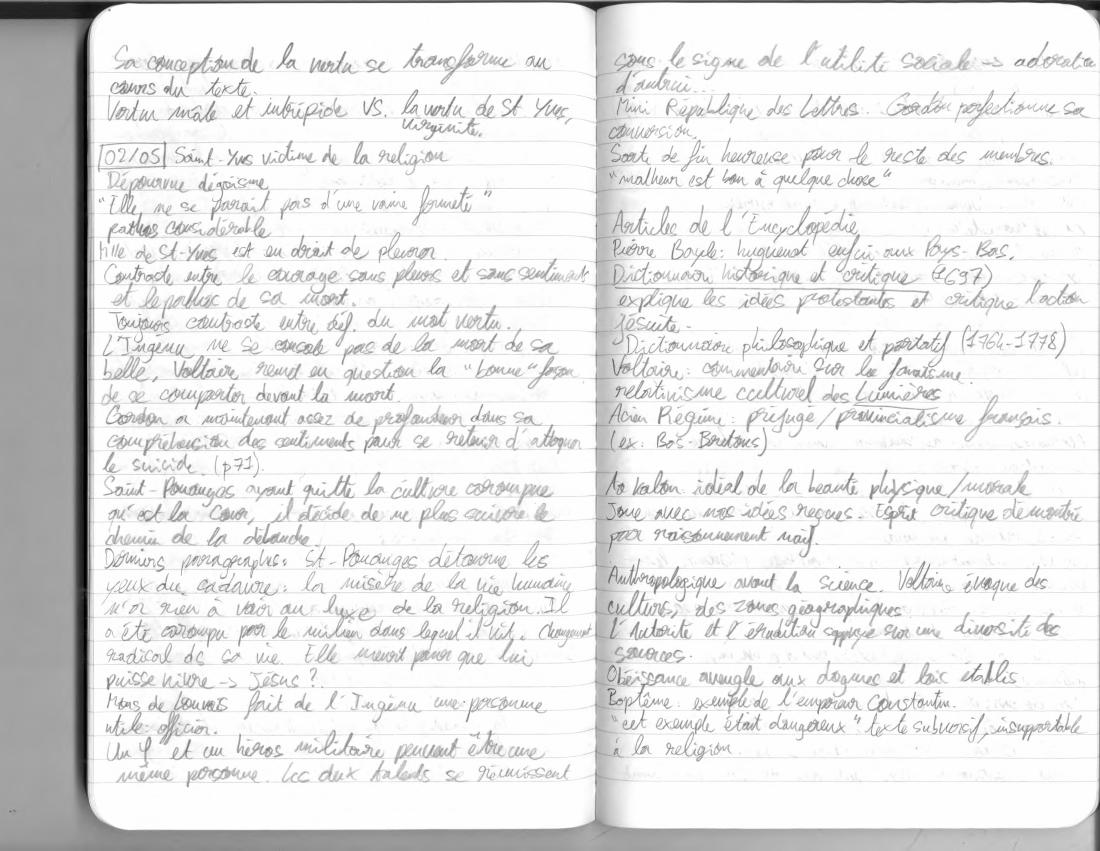 Sa conception de la vertu se transforme au
cours du texte.
Vertu mâle et intrépide VS. la vertu de St Yves,
virginité.
02/05 Saint-Yves victime de la religion
Dépourvue d'égoïsme
"Elle ne se parait pas d'une vaine fermeté"
pathos considérable
Mlle de St-Yves est en droit de pleurer.
Contraste entre le courage sans pleurs et sans sentiment
et le pathos de sa mort.
Toujours contraste entre déf. du mot vertu.
L'Ingénu ne se console pas de la mort de sa
belle, Voltaire remet en question la "bonne" façon
de se comporter devant la mort.
Gordon a maintenant assez de profondeur dans sa
compréhension des sentiments pour se retenir d'attaquer
le suicide. (p71).
Saint-Pouanges ayant quitté la culture corompue
qu'est la Cour, il décide de ne plus suivre le
chemin de la débauche.
Derniers paragraphes: St-Pouanges détourne les
yeux du cadavre: la misère de la vie humaine
n'a rien à voir au luxe de la religion. Il
a été corompu par le milieu dans lequel il vit. Changement
radical de sa vie. Elle meurt pour que lui
puisse vivre -> Jésus?
Mons de Louvois fait de l'Ingénu une personne
utile: officier.
Un φ et un héros militaire peuvent être une
même personne. Les deux talents se réunissent
sous le signe de l'utilité sociale -> adoration
d'autrui...
Mini République des Lettres. Gordon perfectionne sa
conversion.
Sorte de fin heureuse pour le reste des membres.
"malheur est bon à quelque chose"
Articles de l'Encyclopédie
Pierre Bayle: huguenot enfui aux Pays-Bas.
Dictionnaire historique et critique (1697)
explique les idées protestantes et critique l'action
Jésuite.
Dictionnaire philosophique et portatif (1764-1778)
Voltaire: commentaire sur le fanatisme.
relativisme culturel des Lumières
Acien Régime: préjugé/provincialisme français.
(ex: Bas-Bretons)
idéal de la beauté physique/morale
Joue avec nos idées reçues. Esprit critique démontré
par raisonnement naïf.
Anthropologique avant la science. Voltaire évoque des
cultures, des zones géographiques
l'Autorité et l'érudition appuyée sur une diversité des
sources.
Obéissance aveugle aux dogmes et lois établis
Baptême: exemple de l'empereur Constantin.
"cet exemple était dangereux" texte subversif, insupportable
à la religion.